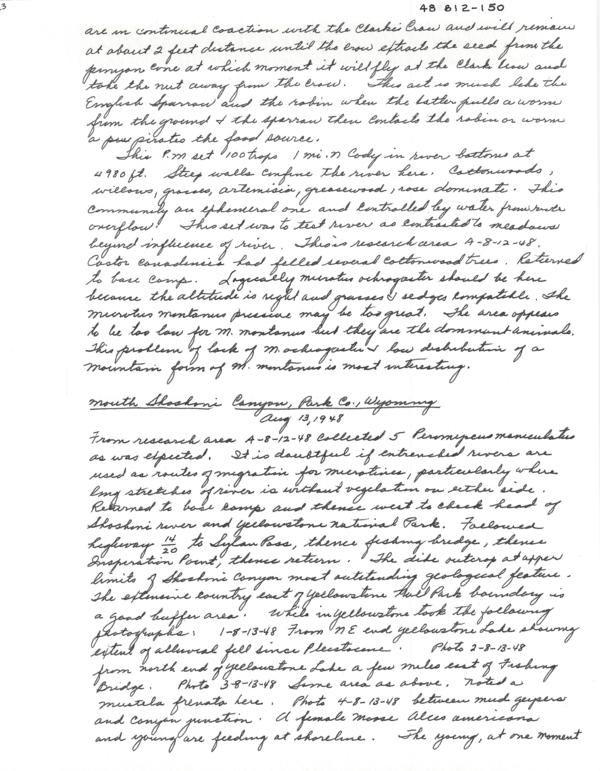 3
48 812-150
are in continual coaction with the Clarke's Crow and will remain
at about 2 feet distance until the crow extracts the seed from the
pinyon cone at which moment it will fly at the Clark Crow and
take the nut away from the crow. This act is much like the
English Sparrow and the robin when the latter pulls a worm
from the ground & the sparrow then contacts the robin or worm
a pirates the food source.
This P.M set 100 traps 1 mi. N Cody in river bottoms at
4980 ft. Steep walls confine the river here. Cottonwoods,
willows, grasses, artemisia, greasewood, rose dominate. This
community an ephemeral one and controlled by water from river
overflow. This set was to test river as contrasted to meadows
beyond influence of river. This is research area A-8-12-48.
Castor canadensis had felled several cottonwood trees. Returned
to base camp. Logically microtus ochrogaster should be here
because the altitude is right and grasses & sedges compatible. The
microtus montanus pressure may be too great. The area appears
to be too low for M. montanus but they are the dominant animals.
This problem of lack of M. ochrogaster & low distribution of a
mountain form of M. montanus is most interesting.
Mouth Shoshoni Canyon, Park Co., Wyoming
Aug 13, 1948
From research area A-8-12-48 collected 5 Peromyscus maniculatus
as was expected. It is doubtful if entrenched rivers are
used as routes of migration for microtines, particularly where
long stretches of river is without vegetation on either side.
Returned to base camp and thence went to check head of
Shoshoni river and Yellowstone National Park. Followed
highway 14/20 to Sylvan Pass, thence fishing bridge, thence
Inspiration Point, thence return. The dike outcrop at upper
limits of Shoshoni Canyon most outstanding geological feature.
The extensive country east of Yellowstone Natl Park boundary is
a good buffer area. While in Yellowstone took the following
photographs: 1-8-13-48 From NE end Yellowstone Lake showing
extent of alluvial fill since Pleistocene. Photo 2-8-13-48
from north end of Yellowstone Lake a few miles east of Fishing
Bridge. Photo 3-8-13-48 Same area as above. Noted a
mustela frenata here. Photo 4-8-13-48 between mud geysers
and Canyon junction. A female moose Alces americana
and young are feeding at shoreline. The young, at one moment